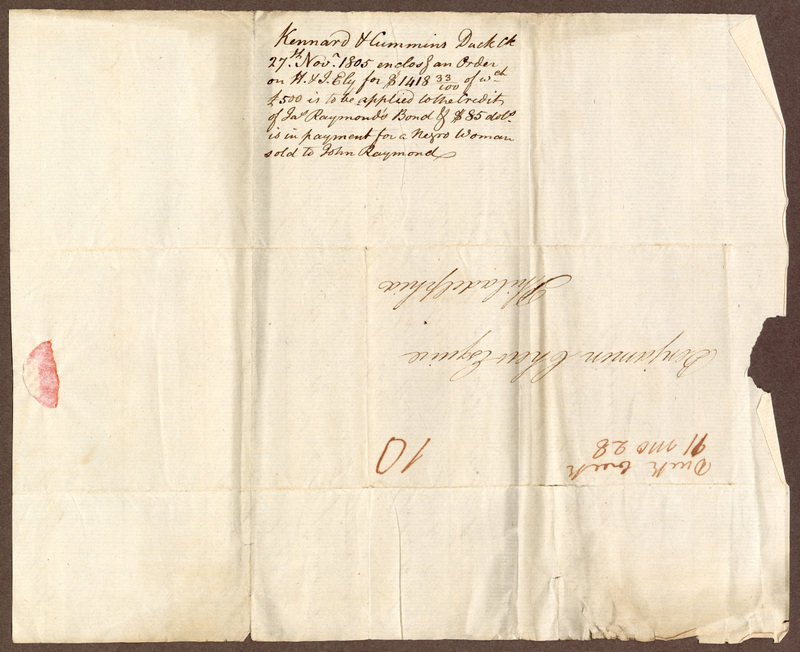 Kennard & Cummins Duck Ck
27th Novr. 1805 enclosg an Order
on H. & I. Ely for $1418 33/100 of wch
£500 is to be applied to the Credit
of Jno Raymond's Bond & $85 dolls.
is in payment for a Negro Woman
sold to John Raymond
Philadelphia
Benjamin Chew Esquire
10
Duck Creek
11 mo 28